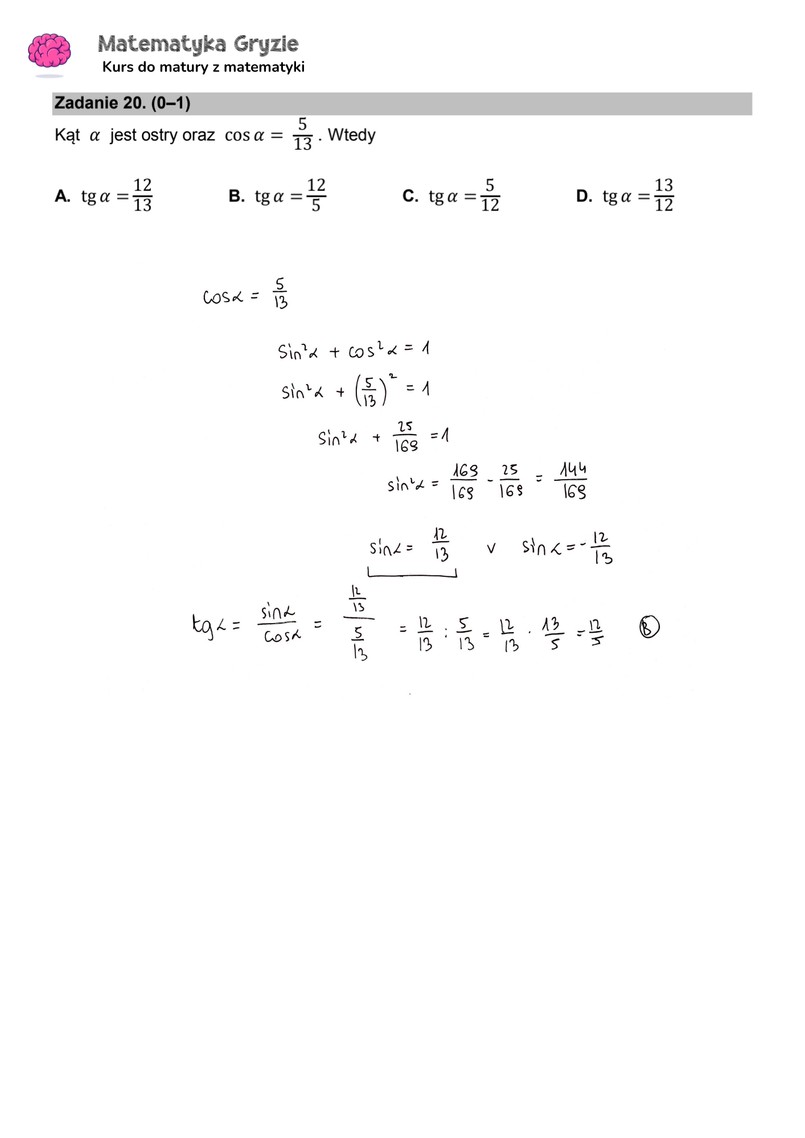 Matematyka Gryzie
Kurs do matury z matematyki
Zadanie 20. (0–1)
Kąt α jest ostry oraz cos α = 5/13 . Wtedy
A. tg α = 12/13 B. tg α = 12/5 C. tg α = 5/12 D. tg α = 13/12
cosα = 5/13
sin²α + cos²α = 1
sin²α + (5/13)² = 1
sin²α + 25/169 = 1
sin²α = 169/169 - 25/169 = 144/169
sinα = 12/13 v sinα = -12/13
tgα = sinα/cosα = (12/13)/(5/13) = 12/13 : 5/13 = 12/13 · 13/5 = 12/5 B